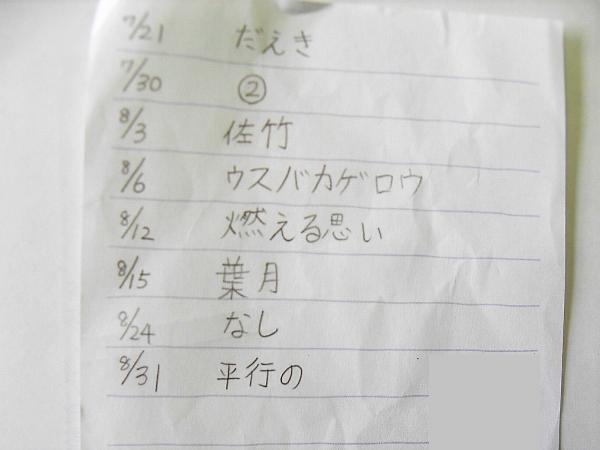 7/21 だえき
7/30 ②
8/3 佐竹
8/6 ウスバカゲロウ
8/12 燃える思い
8/15 葉月
8/24 なし
8/31 平行の